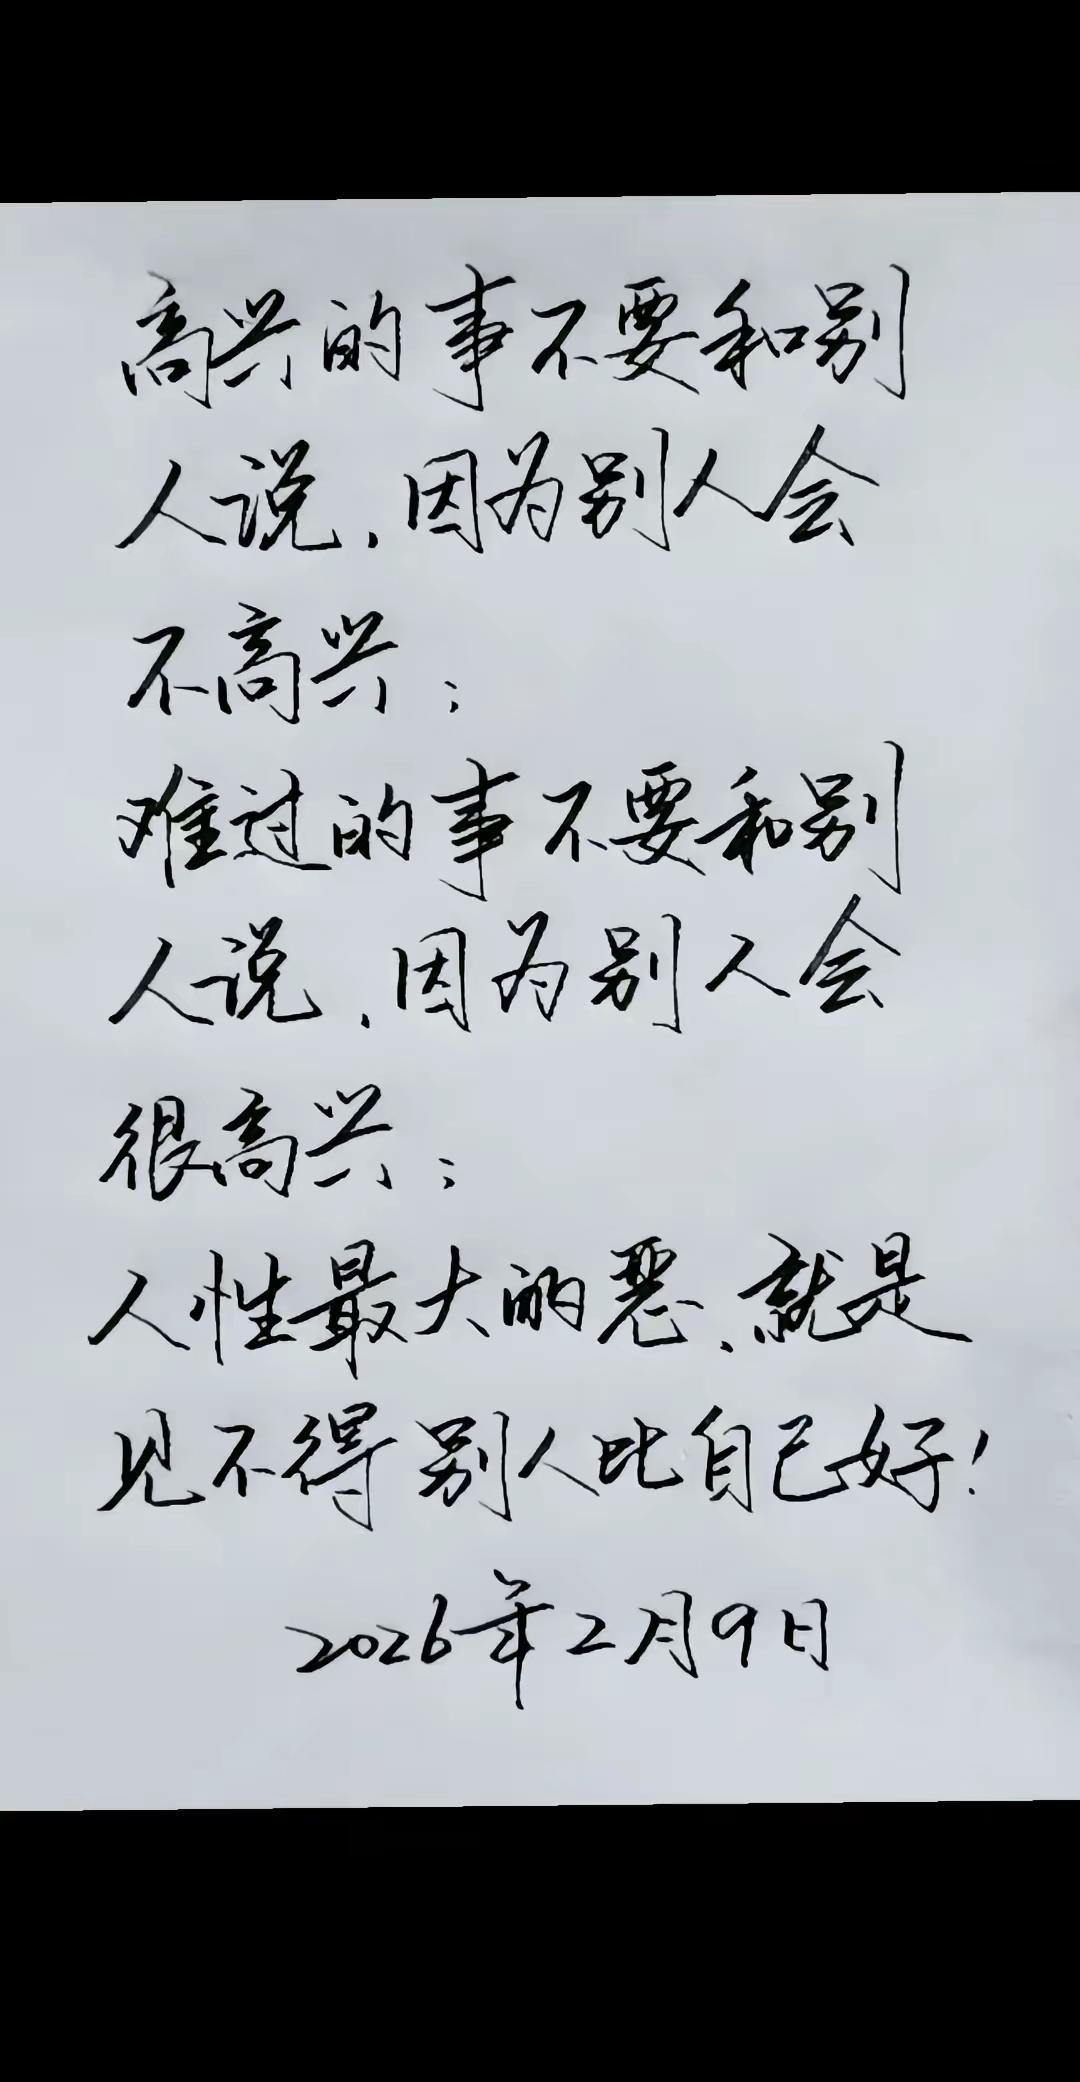 高兴的事不要和别
人说,因为别人会
不高兴;
难过的事不要和别
人说,因为别人会
很高兴;
人性最大的恶,就是
见不得别人比自己好!
2026年2月9日